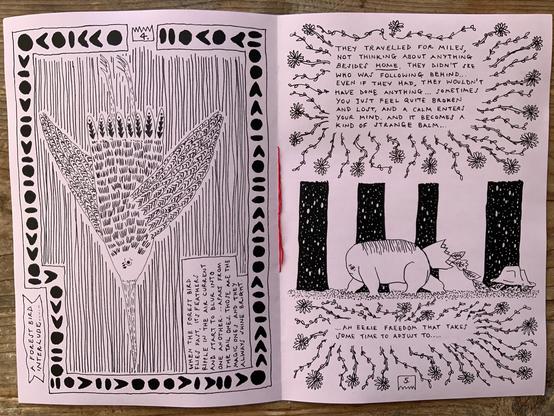 4.
A FOREST BIRD
INTERLUDE...
WHEN THE FOREST BIRD
FLIES FAST, ITS FEATHERS
RIPPLE IN THE AIR CURRENT
AND START TO BLUR INTO
ONE ANOTHER. APART FROM
THE TAIL ONES. THOSE ARE THE
MAGIC ONES AND THEY
ALWAYS SHINE BRIGHT.
THEY TRAVELLED FOR MILES,
NOT THINKING ABOUT ANYTHING
BESIDES HOME. THEY DIDN'T SEE
WHO WAS FOLLOWING BEHIND...
EVEN IF THEY HAD, THEY WOULDN'T
HAVE DONE ANYTHING... SOMETIMES
YOU JUST FEEL QUITE BROKEN
AND LOST, AND A CALM ENTERS
YOUR MIND. AND IT BECOMES A
KIND OF STRANGE BALM...
...AN EERIE FREEDOM THAT TAKES
SOME TIME TO ADJUST TO....
5.